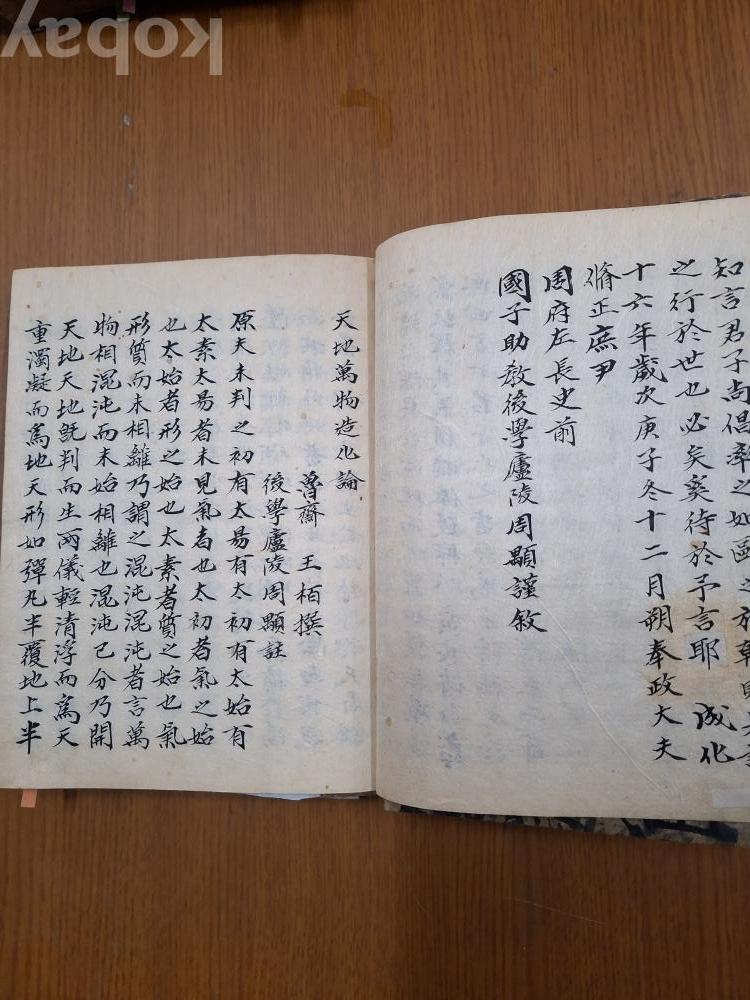 kobay
知言君子尚倡率之如
之行於世也必矣奚待於予言耶　成化
十六年歲次庚子冬十二月朔奉政大夫
脩正庶尹
周府左長史前
國子助敎後學廬陵周顯謹敘
天地萬物造化論
魯齋　王栢撰
後學廬陵周顯註
原夫未判之初有太易有太初有太始有
太素太易者未見氣者也太初者氣之始
也太始者形之始也太素者質之始也氣
形質而未相離乃謂之混沌混沌者言萬
物相混沌而未始相離也混沌已分乃開
天地天地旣判而生兩儀輕清浮而爲天
重濁凝而爲地天形如彈丸半覆地上半